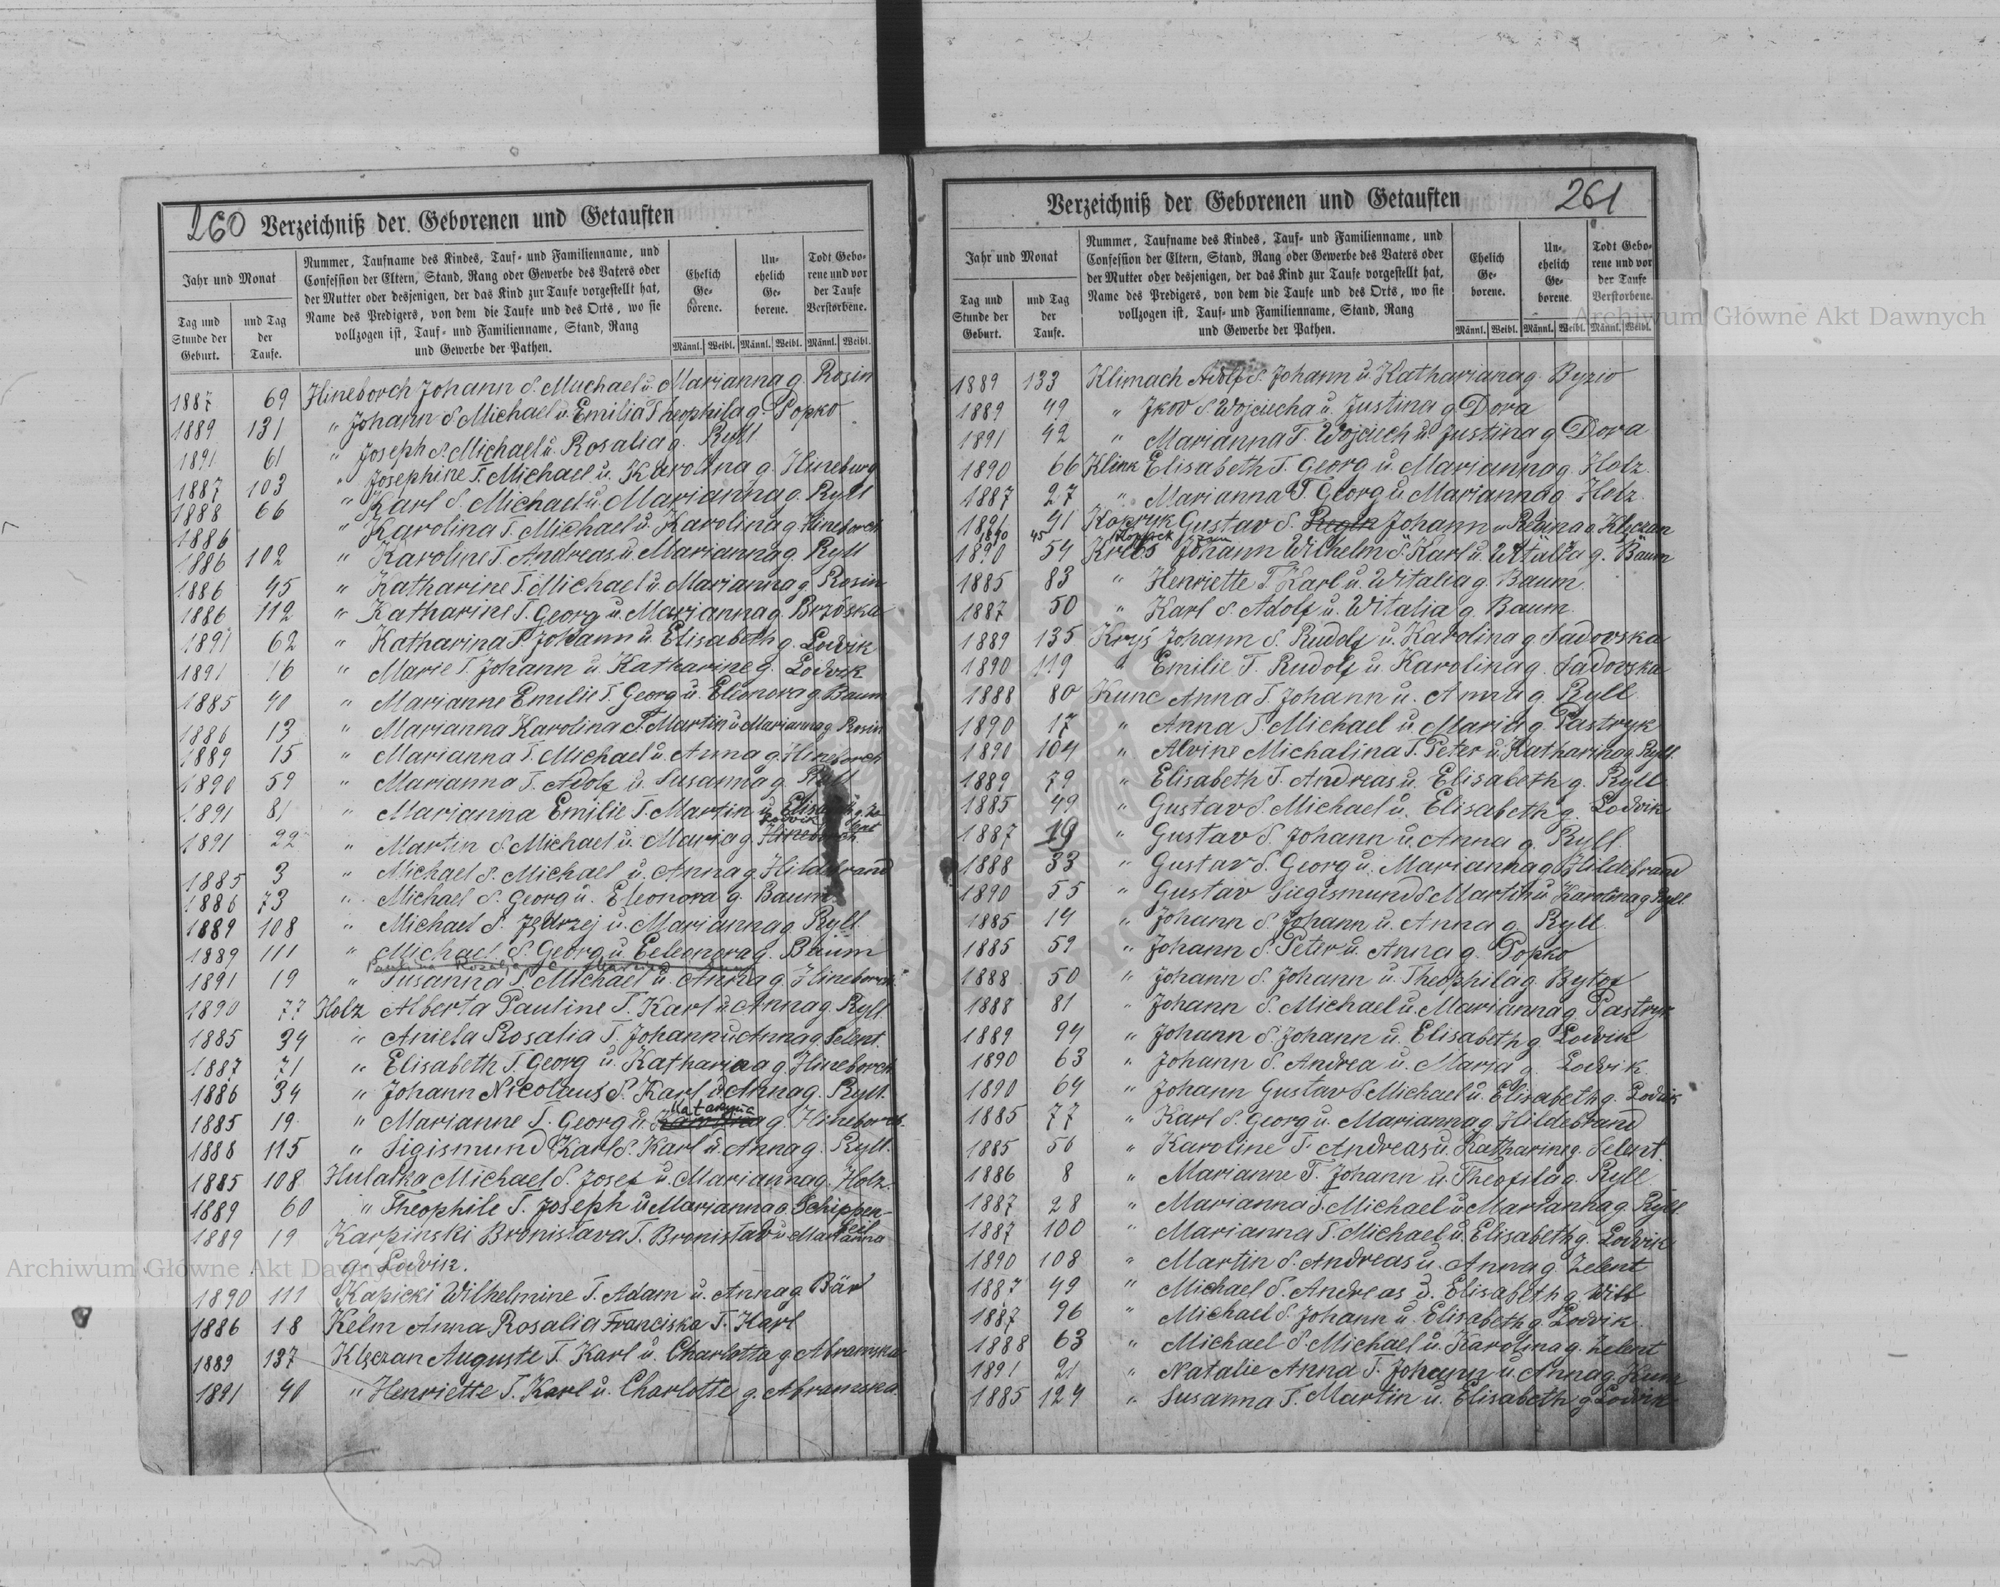 260 Verzeichniß der Geborenen und Getauften
Jahr und Monat
Tag und Stunde der Geburt.
und Tag der Taufe.
Nummer, Taufname des Kindes, Tauf- und Familienname, und
Confession der Eltern, Stand, Rang oder Gewerbe des Vaters oder
der Mutter oder desjenigen, der das Kind zur Taufe vorgestellt hat,
Name des Predigers, von dem die Taufe und des Orts, wo sie
vollzogen ist, Tauf- und Familienname, Stand, Rang
und Gewerbe der Pathen.
Ehelich Geborene.
Unehelich Geborene.
Todt Geborene und vor der Taufe Verstorbene.
Männl. Weibl. Männl. Weibl. Männl. Weibl.
1887 69 Hineborch Johann S. Michael u. Marianna g. Rosin
1889 131 " Johann S. Michael u. Emilia Theophila g. Popko
1891 61 " Joseph S. Michael u. Rosalia g. Ryll
1887 103 " Josephine T. Michael u. Karolina g. Hineburg
1888 66 " Karl S. Michael u. Marianna g. Ryll
1886 " Karolina T. Michael u. Karolina g. Hineborch
1886 102 " Karoline T. Andreas u. Marianna g. Ryll
1886 45 " Katharine T. Michael u. Marianna g. Rosin
1886 112 " Katharine T. Georg u. Marianna g. Brzóska
1891 62 " Katharina T. Johann u. Elisabeth g. Lodvik
1891 16 " Marie T. Johann u. Katharine g. Lodvik
1885 40 " Marianne Emilie T. Georg u. Elionora g. Baum
1886 13 " Marianna Karolina T. Martin u. Marianna g. Rosin
1889 15 " Marianna T. Michael u. Anna g. Hineborch
1890 59 " Marianna T. Adolf u. Susanna g. Ryll
1891 81 " Marianna Emilie T. Martin u.
1891 22 " Martin S. Michael u. Maria g. Hineborch
1885 3 " Michael S. Michael u. Anna g. Hildebrand
1886 73 " Michael S. Georg u. Eleonora g. Baum
1889 108 " Michael S. Jędrzej u. Marianna g. Ryll
1889 111 " Michael S. Georg u. Eeleonora g. Baum
1891 19 " Susanna T. Michael u. Anna g. Hineborch
1890 77 Holz Alberta Pauline T. Karl u. Anna g. Ryll
1885 34 " Aniela Rosalia T. Johann u. Anna g. Selent.
1887 71 " Elisabeth T. Georg u. Katharina g. Hineborch
1886 34 " Johann Nicolaus S. Karl u. Anna g. Ryll.
1885 19 " Marianne T. Georg u. Katarzyna g. Hineborch
1888 115 " Sigismund Karl S. Karl u. Anna g. Ryll.
1885 108 Hulatka Michael S. Josef u. Marianna g. Holz
1889 60 " Theophile T. Joseph u. Marianna g. Schippenbeil
1889 19 Karpinski Bronistava T. Bronistav u. Marianna
g. Lodvik.
1890 111 Kapicki Wilhelmine T. Adam u. Anna g. Bär
1886 18 Kelm Anna Rosalia Franciska T. Karl
1889 137 Klęczan Auguste T. Karl u. Charlotta g. Abramska
1891 40 " Henriette T. Karl u. Charlotte g. Abramska
Verzeichniß der Geborenen und Getauften 261
Jahr und Monat
Tag und Stunde der Geburt.
und Tag der Taufe.
Nummer, Taufname des Kindes, Tauf- und Familienname, und
Confession der Eltern, Stand, Rang oder Gewerbe des Vaters oder
der Mutter oder desjenigen, der das Kind zur Taufe vorgestellt hat,
Name des Predigers, von dem die Taufe und des Orts, wo sie
vollzogen ist, Tauf- und Familienname, Stand, Rang
und Gewerbe der Pathen.
Ehelich Geborene.
Unehelich Geborene.
Todt Geborene und vor der Taufe Verstorbene.
Männl. Weibl. Männl. Weibl. Männl. Weibl.
1889 133 Klimach Adolf S. Johann u. Kathariana g. Byzio
1889 49 " S. Wojciecha u. Justina g. Dora
1891 42 " Marianna T. Wojciech u. Justina g. Dora
1890 66 Klink Elisabeth T. Georg u. Marianna g. Holz.
1887 27 " Marianna T. Georg u. Marianna g. Holz.
1891 41 Kopryk Gustav S. Johann u. Regina g. Klęczan
1890 45
1890 54 Krebs Johann Wilhelm S. Karl u. Witalia g. Baum
1885 83 " Henriette T. Karl u. Witalia g. Baum
1887 50 " Karl S. Adolf u. Witalia g. Baum
1889 135 Kryś Johann S. Rudolf u. Karolina g. Sadovska
1890 119 " Emilie T. Rudolf u. Karolina g. Sadovska
1888 80 Kunc Anna T. Johann u. Anna g. Ryll
1890 17 " Anna T. Michael u. Maria g. Pastryk
1890 104 " Alvine Michalina T. Peter u. Katharina g. Ryll
1889 79 " Elisabeth T. Andreas u. Elisabeth g. Ryll
1885 49 " Gustav S. Michael u. Elisabeth g. Lodvik
1887 19 " Gustav S. Johann u. Anna g. Ryll.
1888 33 " Gustav S. Georg u. Marianna g. Hildebrand
1890 55 " Gustav Siegismund S. Martin u. Karolina g. Ryll
1885 14 " Johann S. Johann u. Anna g. Ryll
1885 59 " Johann S. Peter u. Anna g. Popko
1888 50 " Johann S. Johann u. Theophila g. Bytof
1888 81 " Johann S. Michael u. Marianna g. Pastryk
1889 94 " Johann S. Johann u. Elisabeth g. Lodvik
1890 63 " Johann S. Andrea u. Maria g. Lodvik
1890 64 " Johann Gustav S. Michael u. Elisabeth g. Lodvik
1885 77 " Karl S. Georg u. Marianna g. Hildebrand
1885 56 " Karoline T. Andreas u. Katharine g. Selent.
1886 8 " Marianne T. Johann u. Theofila g. Ryll
1887 28 " Marianna T. Michael u. Marianna g. Ryll
1887 100 " Marianna T. Michael u. Elisabeth g. Lodvik
1890 108 " Martin S. Andreas u. Anna g. Zelent
1887 49 " Michael S. Andreas u. Elisabeth g. Witt
1887 96 " Michael S. Johann u. Elisabeth g. Lodvik
1888 63 " Michael S. Michael u. Karolina g. Zelent
1891 21 " Natalie Anna T. Johann u. Anna g. Kunz
1885 124 " Susanna T. Martin u. Elisabeth g. Lodvik
Archiwum Główne Akt Dawnych
Archiwum Główne Akt Dawnych